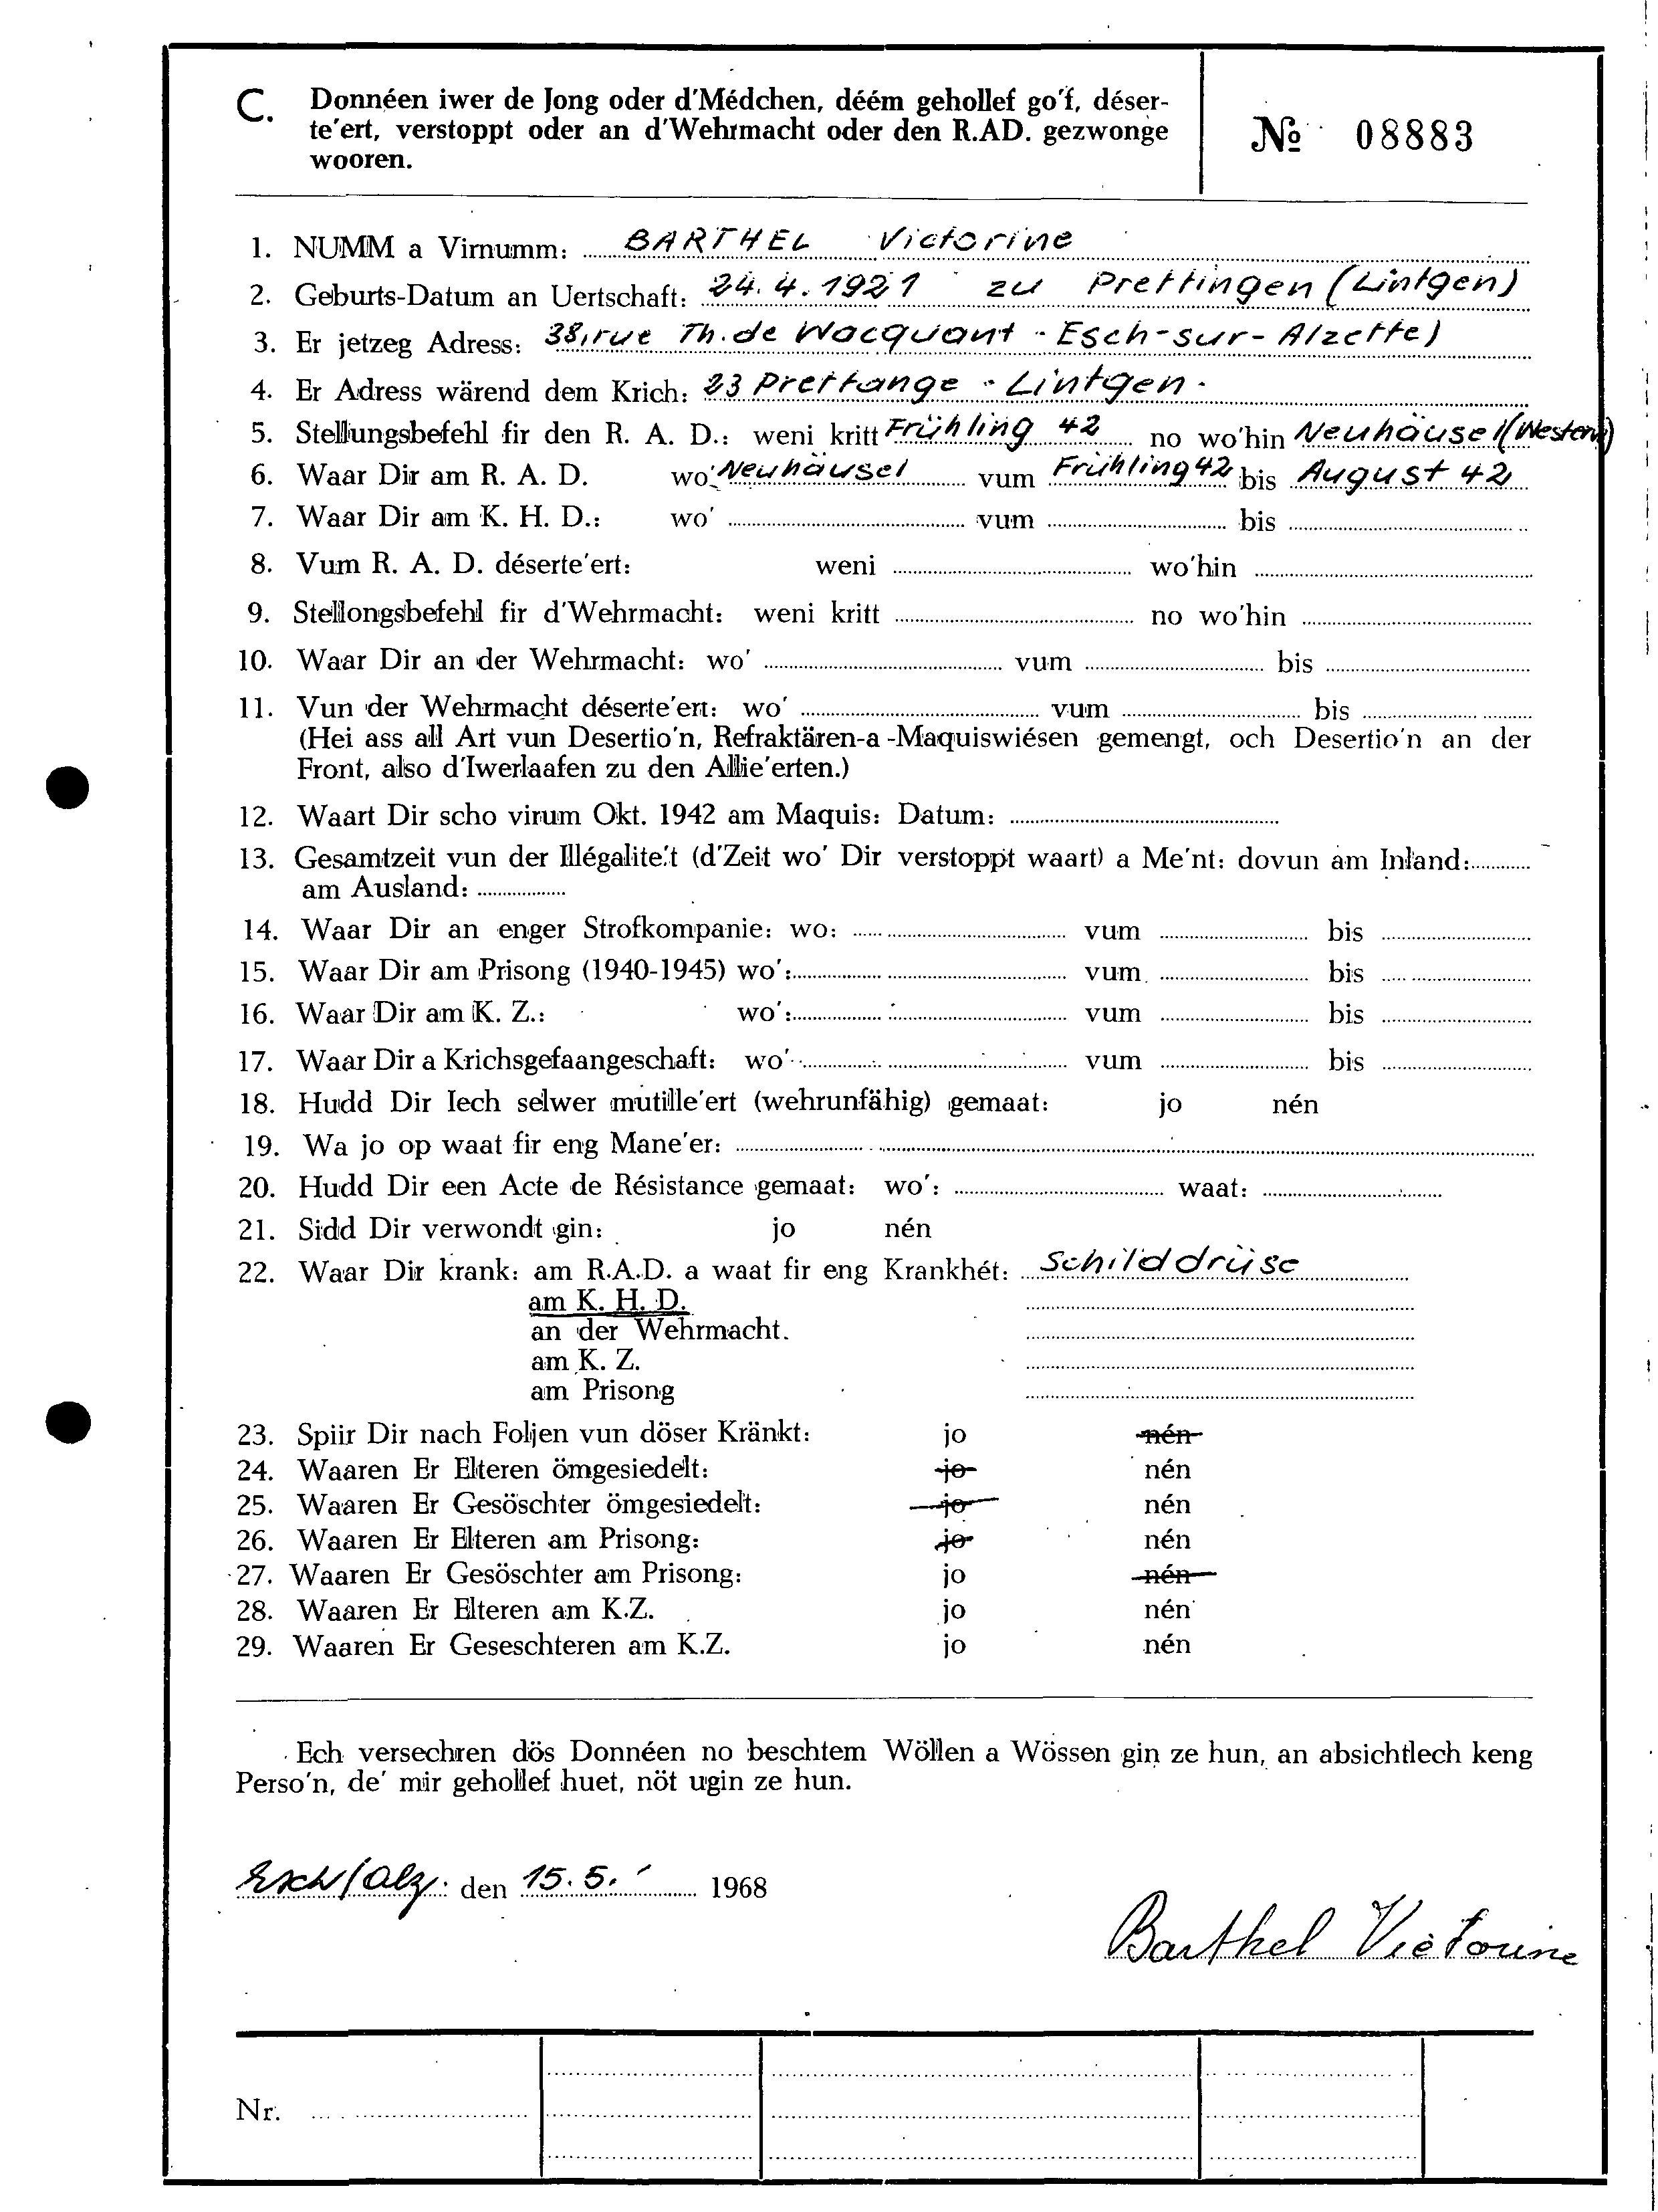 C. Donnéen iwer de Jong oder d'Médchen, déém gehollef go'f, déser-
te'ert, verstoppt oder an d'Wehrmacht oder den R.AD. gezwonge
wooren.
№ 08883
1. NUMM a Virnumm: BARTHEL Victorine
2. Geburts-Datum an Uertschaft: 24.4.1921 zu Prettingen (Lintgen)
3. Er jetzeg Adress: 38, rue Th. de Wacquant - Esch-sur-Alzette)
4. Er Adress wärend dem Krich: 23 Prettange - Lintgen -
5. Stellungsbefehl fir den R. A. D.: weni kritt Frühling 42 no wo'hin Neuhäusel (Westerw)
6. Waar Dir am R. A. D. wo' Neuhäusel vum Frühling 42 bis August 42
7. Waar Dir am K. H. D.: wo' vum bis
8. Vum R. A. D. déserte'ert: weni wo'hin
9. Stellongsbefehl fir d'Wehrmacht: weni kritt no wo'hin
10. Waar Dir an der Wehrmacht: wo' vum bis
11. Vun der Wehrmacht déserte'ert: wo' vum bis
(Hei ass all Art vun Desertio'n, Refraktären-a-Maquiswiésen gemengt, och Desertio'n an der
Front, also d'Iwerlaafen zu den Allie'erten.)
12. Waart Dir scho virum Okt. 1942 am Maquis: Datum:
13. Gesamtzeit vun der Illégalite't (d'Zeit wo' Dir verstoppt waart) a Me'nt: dovun am Inland:
am Ausland:
14. Waar Dir an enger Strofkompanie: wo: vum bis
15. Waar Dir am Prisong (1940-1945) wo': vum bis
16. Waar Dir am K. Z.: wo': vum bis
17. Waar Dir a Krichsgefaangeschaft: wo' vum bis
18. Hudd Dir Iech selwer mutille'ert (wehrunfähig) gemaat: jo nén
19. Wa jo op waat fir eng Mane'er:
20. Hudd Dir een Acte de Résistance gemaat: wo': waat:
21. Sidd Dir verwondt gin: jo nén
22. Waar Dir krank: am R.A.D. a waat fir eng Krankhét: Schilddrüse
am K. H. D.
an der Wehrmacht.
am K. Z.
am Prisong
23. Spiir Dir nach Foljen vun döser Kränkt: jo nén
24. Waaren Er Elteren ömgesiedelt: jo nén
25. Waaren Er Gesöschter ömgesiedelt: jo nén
26. Waaren Er Elteren am Prisong: jo nén
27. Waaren Er Gesöschter am Prisong: jo nén
28. Waaren Er Elteren am K.Z. jo nén
29. Waaren Er Geseschteren am K.Z. jo nén
Ech versechren dös Donnéen no beschtem Wöllen a Wössen gin ze hun, an absichtlech keng
Perso'n, de' mir gehollef huet, nöt ugin ze hun.
Esch/Alz. den 15.5. 1968
Barthel Victorine
Nr.